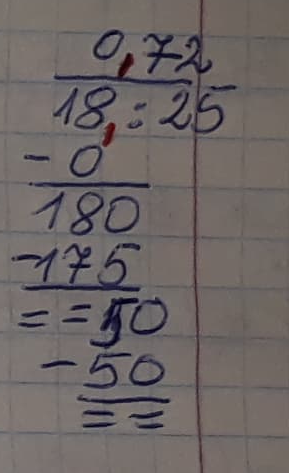 0,72
18, : 25
- 0
180
-175
= = 50
- 50
= =